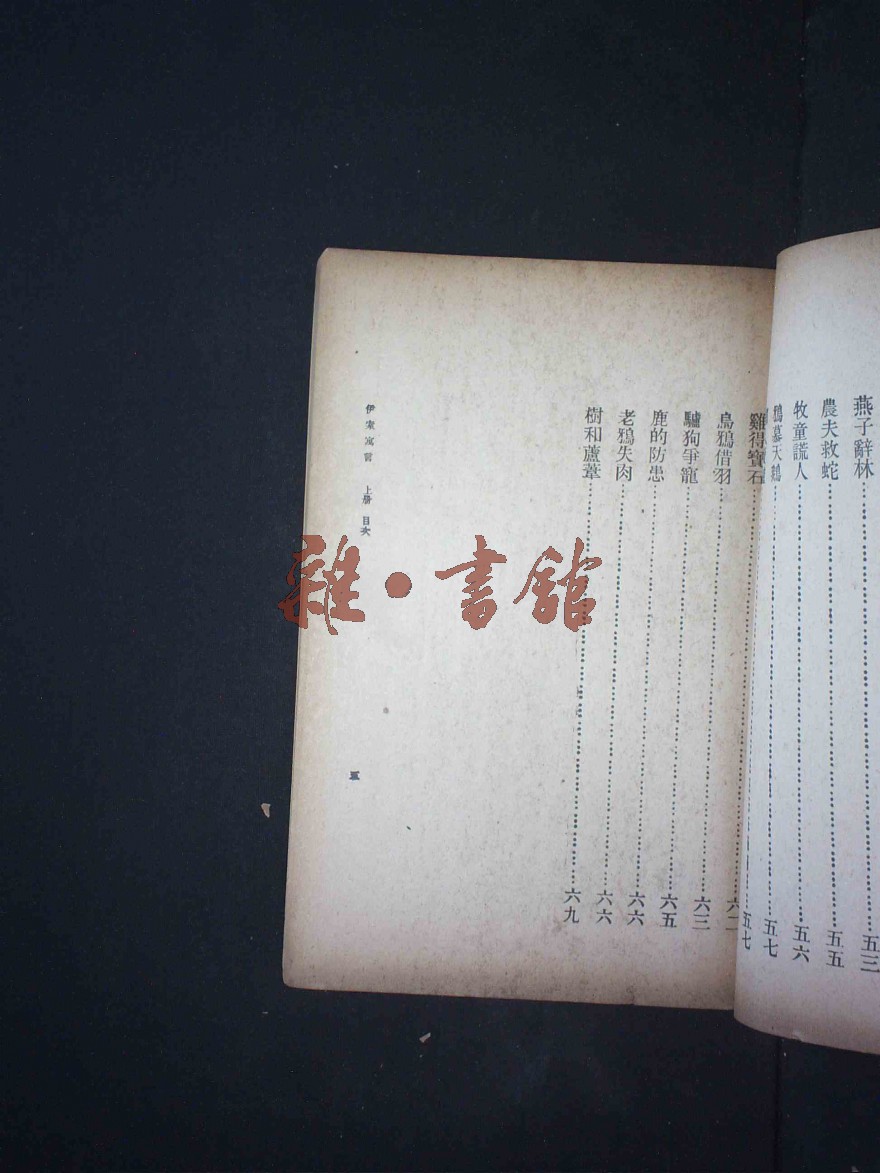 五三
燕子辭林……五五
農夫救蛇……五六
牧童謊人……五七
鴉慕天鵝……五七
雞得寶石……六二
烏鴉借羽……六三
驢狗爭寵……六五
鹿的防患……六六
老鴉失肉……六六
樹和蘆葦……六九
伊索寓言 上册 目次 五
雜·書館